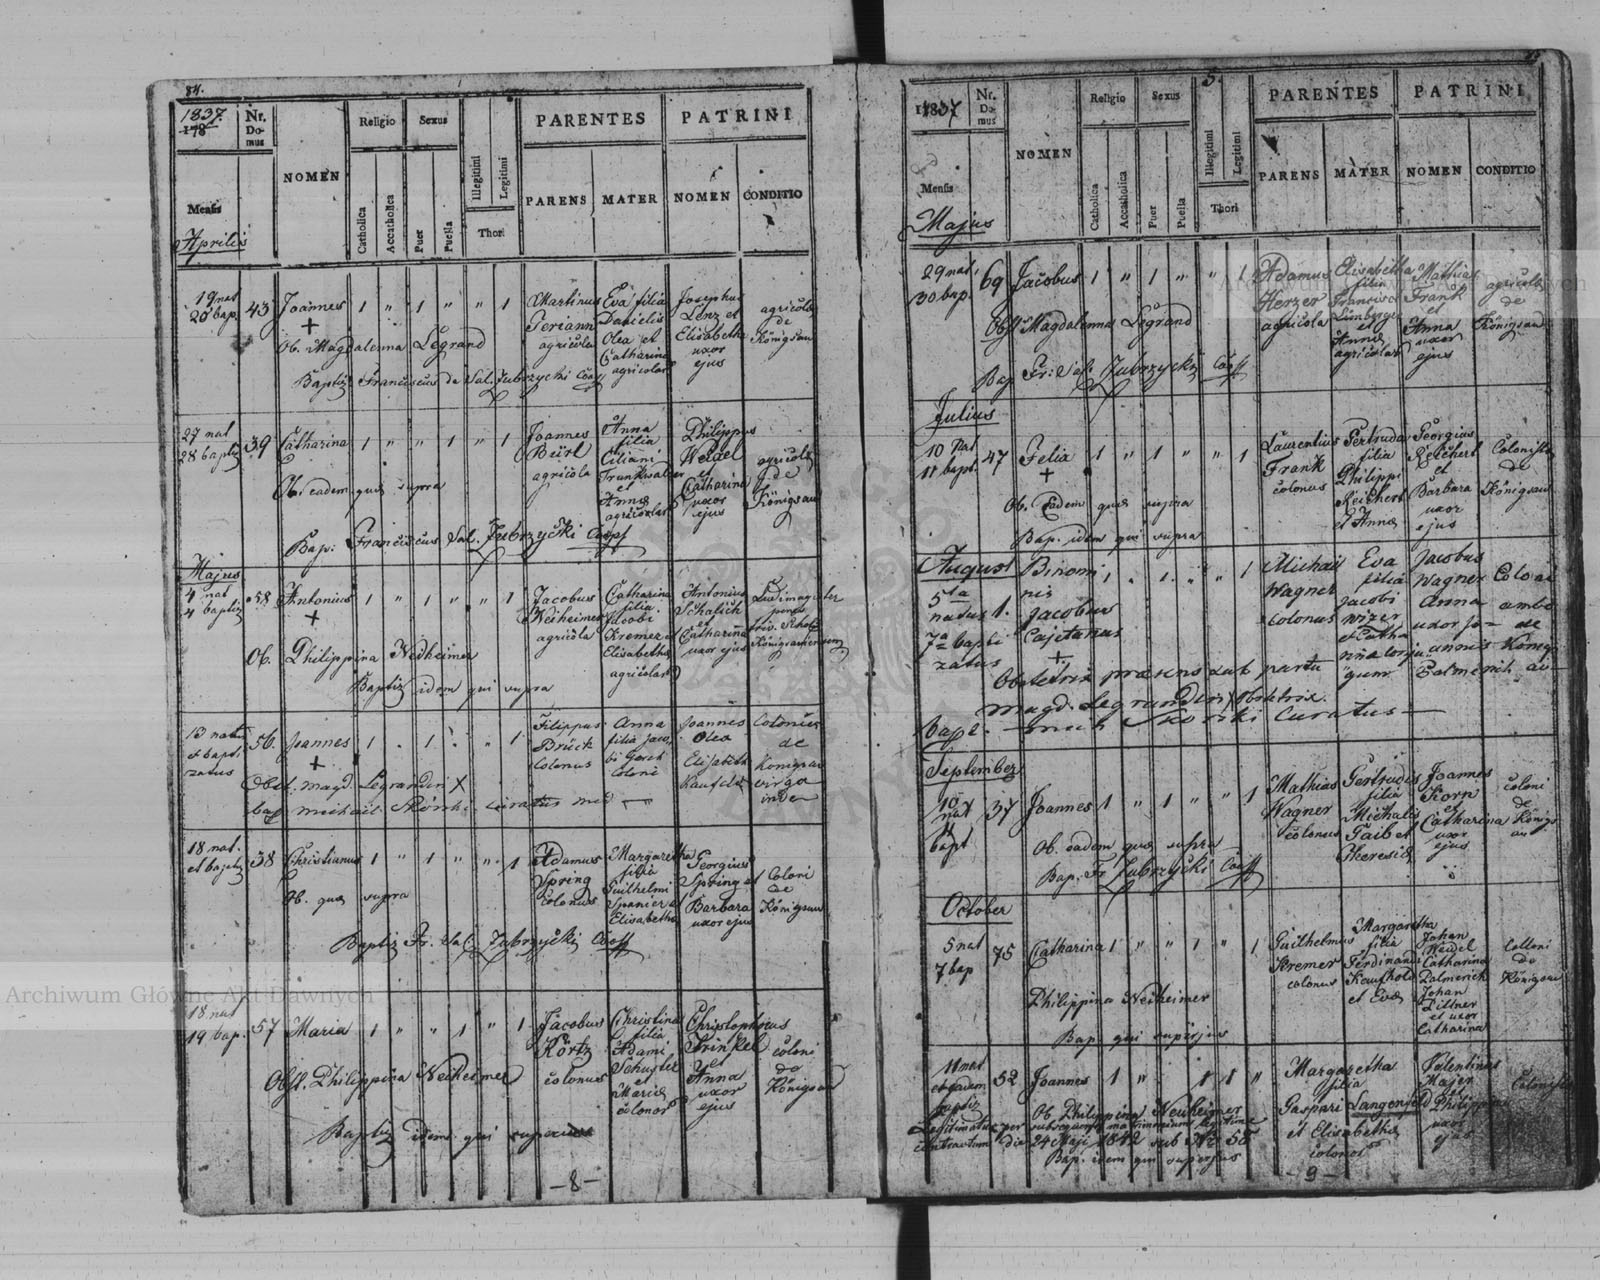 84.
1837 Nr. Domus NOMEN Religio Sexus PARENTES PATRINI
178
Mensis Catholica Accatholica Puer Puella Illegitimi Legitimi Thori PARENS MATER NOMEN CONDITIO
Aprilis
19 nat 20 bap. 43 Joannes 1 " 1 " " 1 Martinus agricola Eva filia Danielis Olea et Catharina agricolar Josephus Lenz et Elisabetha uxor ejus agricola de Königsau
+
Ob. Magdalenna Legrand
Baptiz Franciscus de Sal. Zubrzycki Coop
27 nat 28 baptiz 39 Catharina 1 " " 1 " 1 Joannes agricola Anna filia et Anna agricolar Philippus Weidel et Catharina uxor ejus agricola de Königsau
Ob. eadem quæ supra
Bap: Franciscus Sal. Zubrzycki Coop
Majus
4 nat 4 baptiz 58 Antonius 1 " 1 " " 1 Jacobus Neiheimer agricola Catharina filia Jacobi Kremer et Elisabetha agricolar Antonius Schalich et Catharina uxor ejus Ludimagister
+
Ob. Philippina Neiheimer
Baptiz idem qui supra
13 natus et bapti zatus 56. Joannes 1 . 1 . " 1 Filippus Brück Colonus Anna filia Jaco bi Coloni Joannes Olea Elisabeth Kaufeld Colonus de Königsau virgo inde
+
Obst. Magd. Legrandin X
bap Michael curatus
18 nat. et baptiz 38 Christianus 1 " 1 " " 1 Adamus Spring colonus Margaretha filia Guilhelmi Spanier et Elisabetha Georgius Spring et Barbara uxor ejus Coloni de Königsau
Ob. quæ supra
Baptiz Fr. Sal. Zubrzycki Coop
18 nat 19 bap. 57 Maria 1 " " 1 " 1 Jacobus Körtz colonus Christina filia Adami Schuster et Maria colonor Christophorus Trinkel et Anna uxor ejus coloni de Königsau
Obst. Philippina Neiheimer
Baptiz idem qui superius
-8-
1837 Nr. Domus NOMEN Religio Sexus PARENTES PATRINI
Mensis Catholica Accatholica Puer Puella Illegitimi Legitimi Thori PARENS MATER NOMEN CONDITIO
Majus
29 nat. 30 bap. 69 Jacobus 1 " 1 " " 1 Adamus Herzer agricola Elisabetha filia Francisci Limberger et Anna agricolar Mathias Frank et Anna uxor ejus agricola de Königsau
Obst Magdalenna Legrand
Bap Fr: Sal: Zubrzycki Coop
Julius
10 nat 11 bapt. 47 Felia 1 " 1 " " 1 Laurentius Frank colonus Gertruda filia Philippi Reichert et Anna Georgius Reichert et Barbara uxor ejus Colonista de Königsau
+
Ob. Eadem quæ supra
Bap. idem qui supra
August
5ta natus 7a bapti zatus 1. Binomi nis Jacobus Cajetanus 1 . 1 . " 1 Michael Wagner colonus Eva filia Jacobi Wizer et Catha rina Jacobus Wagner Anna uxor Coloni ambo de Königs au
+
Obstetrix præsens sub partu
Magd. Legrandin X Obstetrix.
Bapt. Mich Curatus
September
10 nat 11 bapt 37 Joannes 1 " 1 " " 1 Mathias Wagner colonus Gertrudis filia Michalis Gaib et Theresia Joannes Korn et Catharina uxor ejus coloni de Königs au
Ob. eadem quæ supra
Bap. Fr Zubrzycki Coop
October
5 nat 7 bap 75 Catharina 1 " " 1 " 1 Guilhelmus Kremer colonus Margaretha filia Ferdinandi Kaufhold et Eva Johan Weidel Catharina Palmerich Johan Dittner et uxor Catharina Colloni de Königsau
Philippina Neiheimer
Bap qui superius
11 nat et eadem baptiz 52 Joannes 1 " . 1 1 " Margaretha filia Gaspari Langenfeld et Elisabetha colonor Valentinus Majer et Philippina uxor ejus Colonista
Ob Philippina Neuheimer
Legitimatus per subsequens matrimonium legitime
contractum die 24 Maji 1842 sub Nr 58
Bap. idem qui superius
-9-
Archiwum Główne Akt Dawnych
Archiwum Główne Akt Dawnych